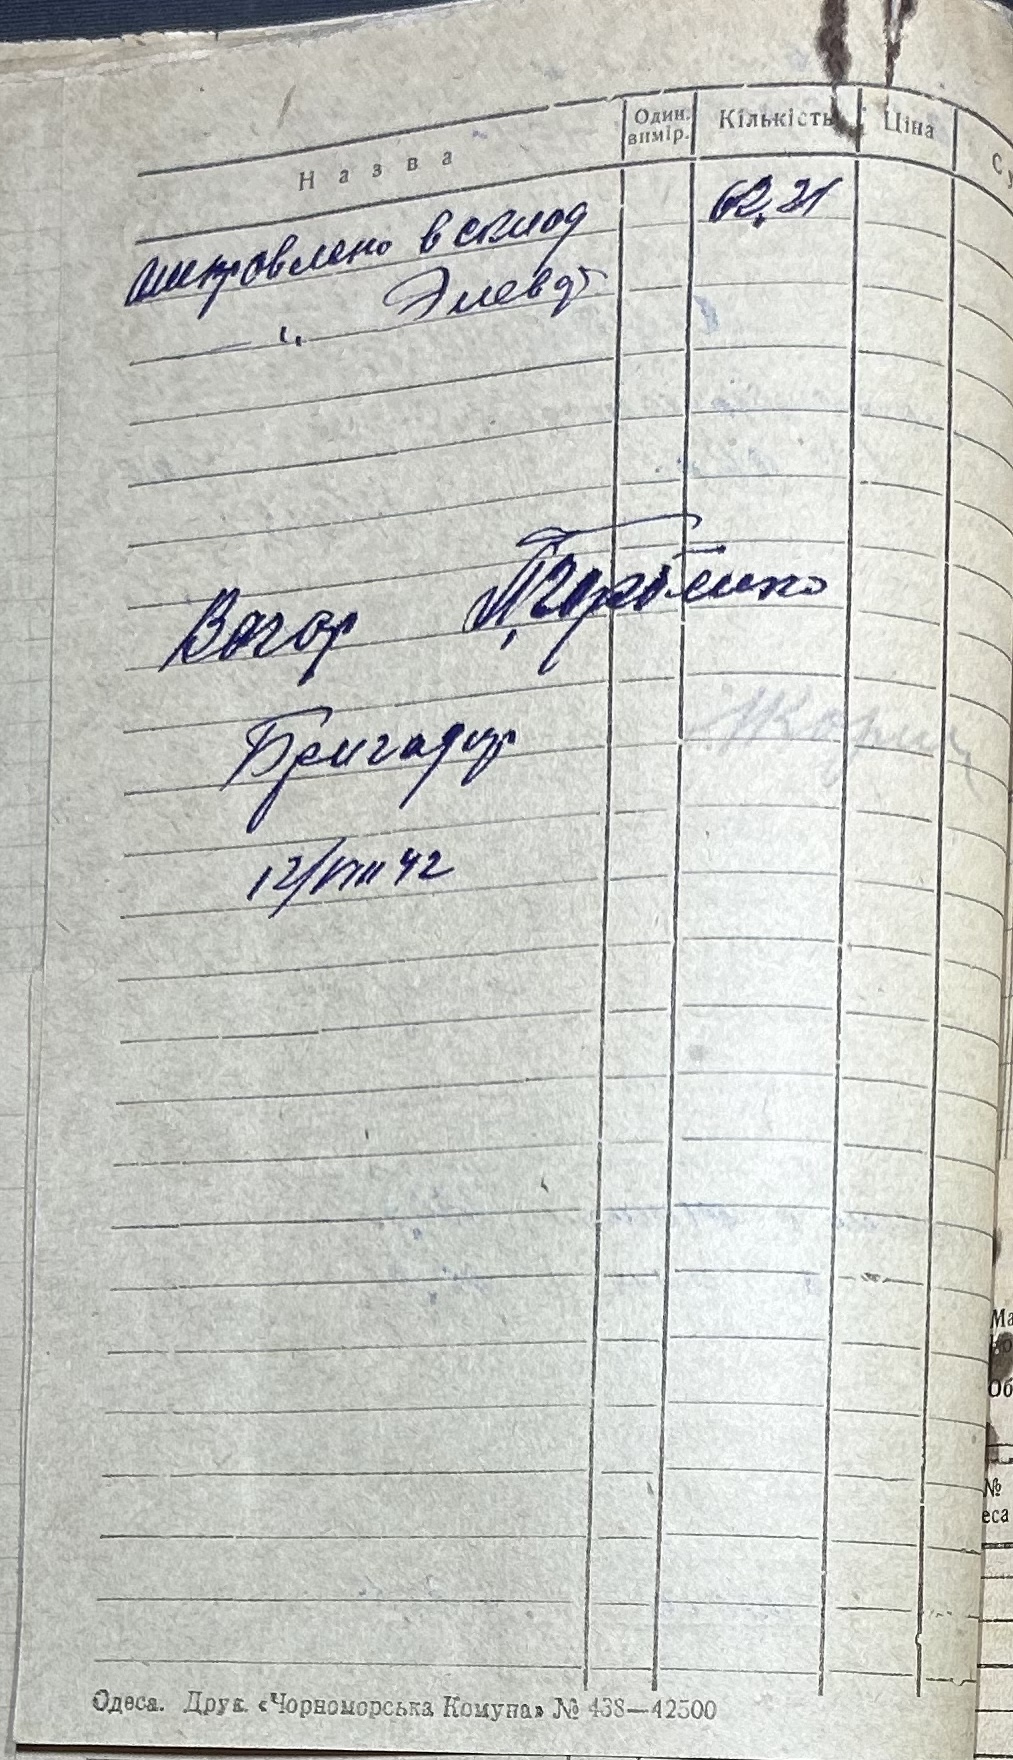 Назва Один. вимір. Кількість Ціна Су
отправлено в склад 62,21
" Элеват
Вагар Горбенко
Бригадир
12/VIII 42
Ма
Об
№
еса
Одеса. Друк. «Чорноморська Комуна» № 438—42500